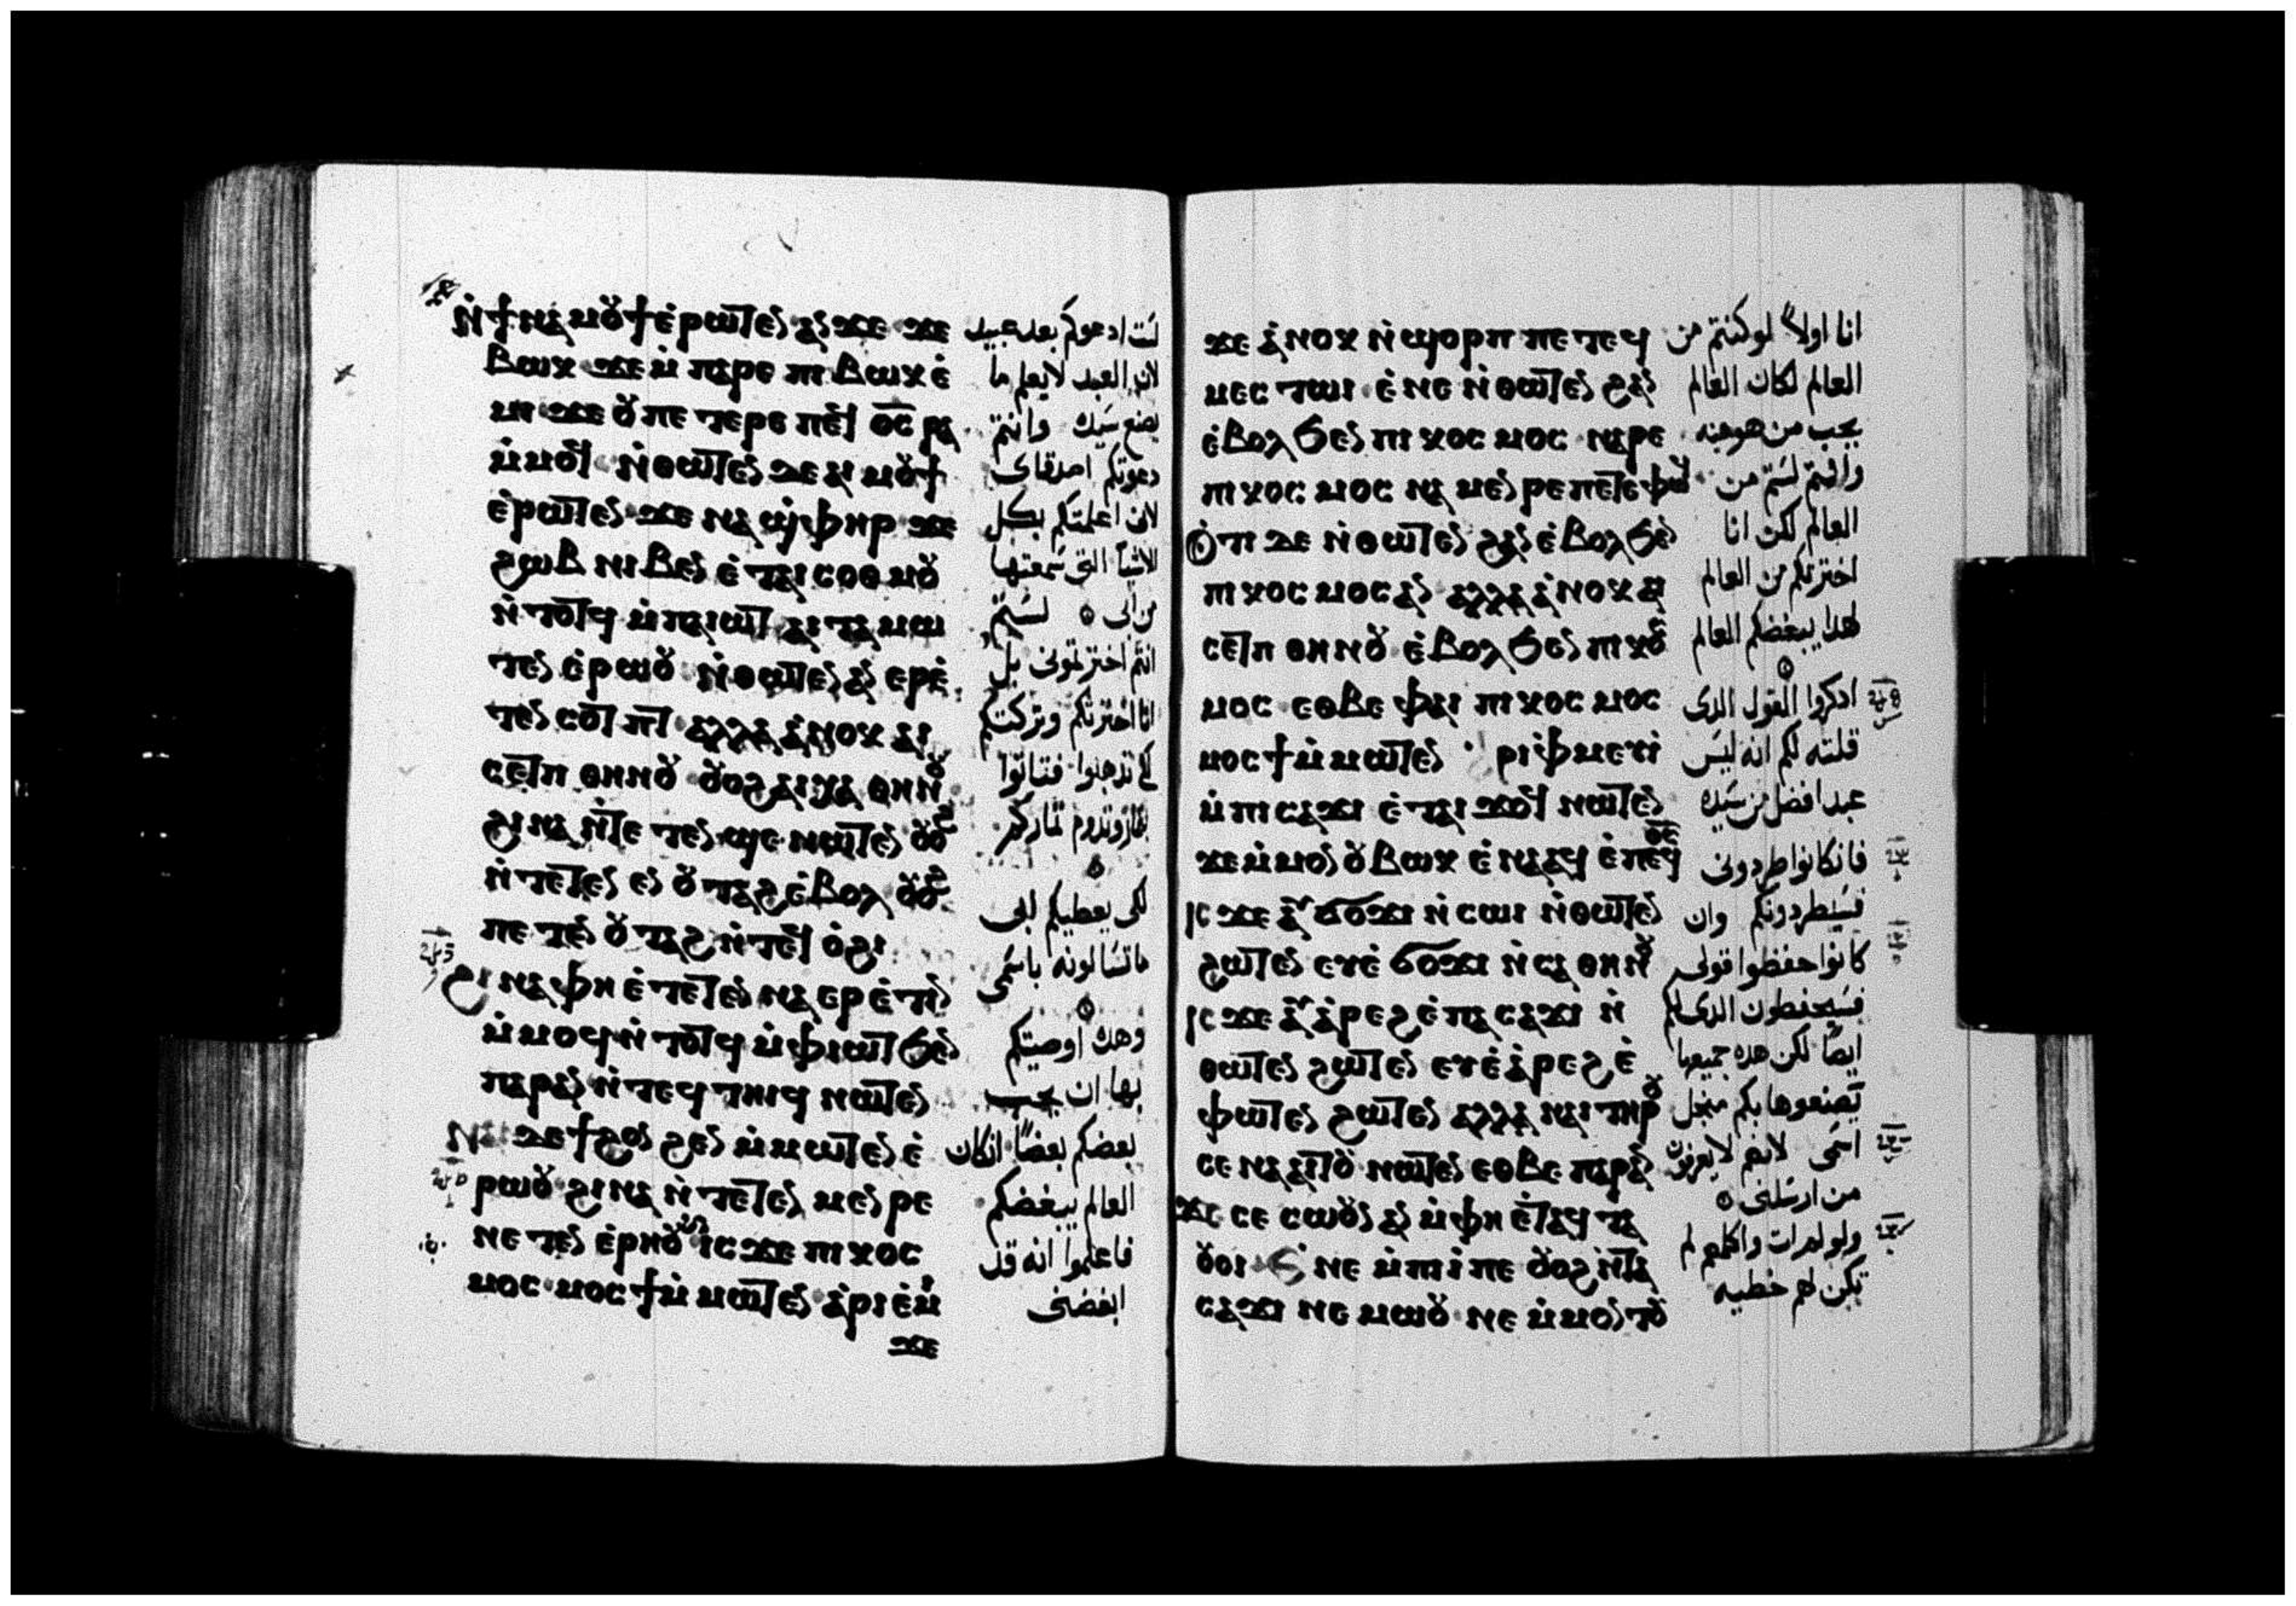 ⲛ̀ϯⲛⲁⲙⲟⲩϯ ⲉ̀ⲣⲱⲧⲉⲛ ⲁⲛ ϫⲉ ϫⲉ
ⲃⲱⲕ ϫⲉ ⲙ̀ⲡⲁⲣⲉ ⲡⲓⲃⲱⲕ ⲉ̀
ⲙⲓ ϫⲉ ⲟⲩ ⲡⲉⲧⲉⲣⲉ ⲡⲉϥ ⲟ̅ⲥ̅ ⲣⲁ
ⲙ̀ⲙⲟϥ ⲛ̀ⲑⲱⲧⲉⲛ ⲇⲉ ⲁⲓⲙⲟⲩϯ
ⲉ̀ⲣⲱⲧⲉⲛ ϫⲉ ⲛⲁϣ̀ⲫⲏⲣ ϫⲉ
ϩⲱⲃ ⲛⲓⲃⲉⲛ ⲉ̀ⲧⲁⲓⲥⲟⲑⲙⲟⲩ
ⲛ̀ⲧⲟⲧϥ ⲙ̀ⲡⲁⲓⲱⲧ ⲁⲓⲧⲁⲙⲱ
ⲧⲉⲛ ⲉ̀ⲣⲱⲟⲩ ⲛ̀ⲑⲱⲧⲉⲛ ⲁⲛ ⲉⲣⲉ̀
ⲧⲉⲛⲥⲟⲧⲡⲧ ⲁⲗⲗⲁ ⲁ̀ⲛⲟⲕ ⲁⲓ
ⲥⲉⲧⲡ ⲑⲏⲛⲟⲩ ⲟⲩⲟϩ ⲁⲓⲭⲁ ⲑⲏⲛⲟⲩ
ϩⲓⲛⲁ ⲛ̀ⲧⲉⲧⲉⲛϣⲉ ⲛⲱⲧⲉⲛ ⲟⲩⲟϩ
ⲛ̀ⲧⲉⲧⲉⲛⲉⲛ ⲟⲩⲧⲁϩ ⲉ̀ⲃⲟⲗ ⲟⲩⲟϩ
ⲡⲉⲧⲉⲛⲟⲩⲧⲁϩ ⲛ̀ⲧⲉϥ ⲟ̀ϩⲓ
ϩⲓⲛⲁ ⲫⲏ ⲉ̀ⲧⲉⲧⲉⲛⲛⲁⲉⲣⲉ̀ⲧⲓⲛ
ⲙ̀ⲙⲟϥ ⲛ̀ⲧⲟⲧϥ ⲙ̀ⲫⲓⲱⲧ ϧⲉⲛ
ⲡⲁⲣⲁⲛ ⲛ̀ⲧⲉϥⲧⲏⲓϥ ⲛⲱⲧⲉⲛ
ⲛⲁⲓ ⲇⲉ ϯϩⲟⲛϩⲉⲛ ⲙ̀ⲙⲱⲧⲉⲛ ⲉ̀
ⲣⲱⲟⲩ ϩⲓⲛⲁ ⲛ̀ⲧⲉⲧⲉⲛⲙⲉⲛⲣⲉ
ⲛⲉⲧⲉⲛⲉ̀ⲣⲏⲟⲩ ⲓⲥϫⲉ ⲡⲓⲕⲟⲥ
ⲙⲟⲥ ⲙⲟⲥϯ ⲙ̀ⲙⲱⲧⲉⲛ ⲁ̀ⲣⲓⲉ̀ⲙⲓ
ϫⲉ
لست ادعوكم بعد عبيد
لان العبد لا يعلم ما
يصنع سيده وانتم
دعوتكم اصدقاى
لانى اعلمتكم بكل
الاشيا التى سمعتها
من ابى لستم
انتم اخترتمونى بل
انا اخترتكم وتركتكم
لكى تذهبوا فتاتوا
بثمار وتدوم ثماركم
لكى يعطيكم ابى
ما تسالونه باسمى
وهذه اوصيتكم
بها ان يحب
بعضكم بعضا ان كان
العالم يبغضكم
فاعلموا انه قد
ابغضنى
ϫⲉ ⲁ̀ⲛⲟⲕ ⲛ̀ϣⲟⲣⲡ ⲡⲉⲧⲉϥ
ⲙⲉⲥⲧⲱⲓ ⲉ̀ⲛⲉ ⲛ̀ⲑⲱⲧⲉⲛ ϩⲁⲛ
ⲉ̀ⲃⲟⲗ ϧⲉⲛ ⲡⲓⲕⲟⲥⲙⲟⲥ ⲛⲁⲣⲉ
ⲡⲓⲕⲟⲥⲙⲟⲥ ⲛⲁⲙⲉⲛⲣⲉ ⲡⲉⲧⲉⲫⲱϥ
ⲟ̀ⲧⲓ ⲇⲉ ⲛ̀ⲑⲱⲧⲉⲛ ϩⲁⲛ ⲉ̀ⲃⲟⲗ ϧⲉⲛ
ⲡⲓⲕⲟⲥⲙⲟⲥ ⲁⲛ ⲁⲗⲗⲁ ⲁ̀ⲛⲟⲕ ⲁⲓ
ⲥⲉⲧⲡ ⲑⲏⲛⲟⲩ ⲉ̀ⲃⲟⲗ ϧⲉⲛ ⲡⲓⲕⲟⲥ
ⲙⲟⲥ ⲉⲑⲃⲉ ⲫⲁⲓ ⲡⲓⲕⲟⲥⲙⲟⲥ
ⲙⲟⲥϯ ⲙ̀ⲙⲱⲧⲉⲛ ⲣⲓⲫ̀ⲙⲉⲩⲓ̀
ⲙ̀ⲡⲓⲥⲁϫⲓ ⲉ̀ⲧⲁⲓϫⲟϥ ⲛⲱⲧⲉⲛ
ϫⲉ ⲙ̀ⲙⲟⲛ ⲟⲩⲃⲱⲕ ⲉ̀ⲛⲁⲁϥ ⲉ̀ⲡⲉϥ ⲟ̅ⲥ̅
ⲓⲥϫⲉ ⲁⲩϭⲟϫⲓ ⲛ̀ⲥⲱⲓ ⲛ̀ⲑⲱⲧⲉⲛ
ϩⲱⲧⲉⲛ ⲉⲩⲉ̀ϭⲟϫⲓ ⲛ̀ⲥⲁ ⲑⲏⲛⲟⲩ
ⲓⲥϫⲉ ⲁⲩⲁ̀ⲣⲉϩ ⲉ̀ⲡⲁⲥⲁϫⲓ ⲛ̀
ⲑⲱⲧⲉⲛ ϩⲱⲧⲉⲛ ⲉⲩⲉ̀ⲁ̀ⲣⲉϩ ⲉ̀
ⲫⲱⲧⲉⲛ ϩⲱⲧⲉⲛ ⲁⲗⲗⲁ ⲛⲁⲓ ⲧⲏⲣⲟⲩ
ⲥⲉⲛⲁⲁⲓⲧⲟⲩ ⲛⲱⲧⲉⲛ ⲉⲑⲃⲉ ⲡⲁⲣⲁⲛ
ϫⲉ ⲥⲉⲥⲱⲟⲩⲛ ⲁⲛ ⲙ̀ⲫⲏ ⲉ̀ⲧⲁϥⲧⲁ
ⲟⲩⲟⲓ ⲉⲛⲉ ⲙ̀ⲡⲓⲓ̀ ⲡⲉ ⲟⲩⲟϩ ⲛ̀ⲧⲁ
ⲥⲁϫⲓ ⲛⲉⲙⲱⲟⲩ ⲛⲉ ⲙ̀ⲙⲟⲛⲧⲟⲩ
انا اولا لو كنتم من
العالم لكان العالم
يحب من هو منه
وانتم لستم من
العالم لكن انا
اخترتكم من العالم
لهذا يبغضكم العالم
اذكروا القول الذى
قلته لكم انه ليس
عبدا افضل من سيده
فان كانوا طردونى
فسيطردونكم وان
كانوا حفظوا قولى
فسيحفظون الذى لكم
ايضا لكن هذه جميعها
يصنعوها بكم من اجل
اسمى لانهم لا يعرفون
من ارسلنى
ولو لم ات واكلمهم لم
تكن لهم خطيه